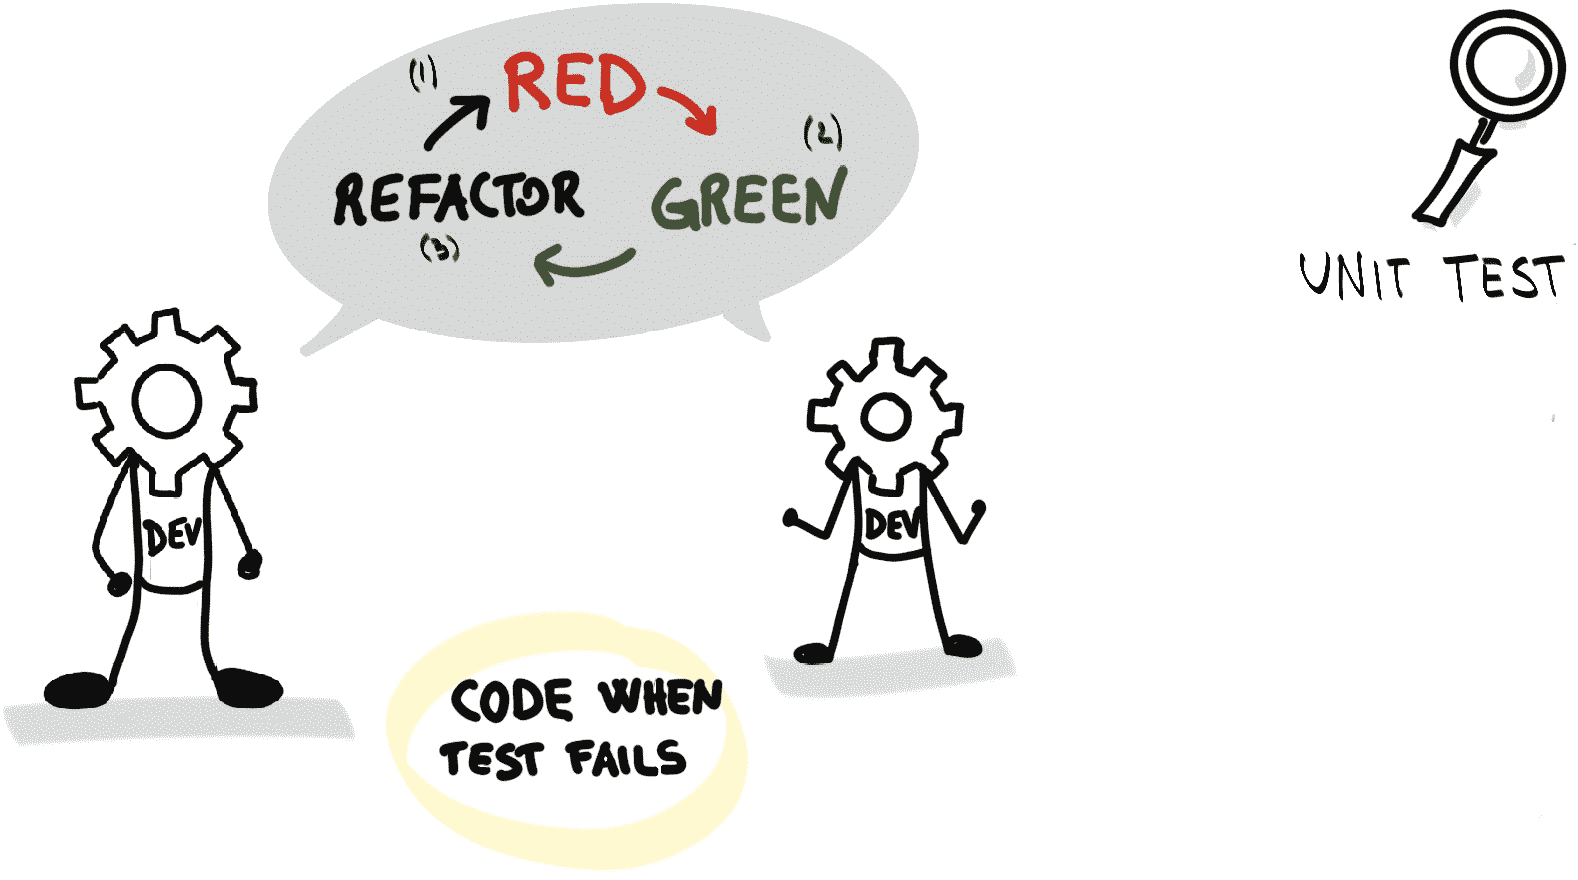 (1)
RED
(2)
REFACTOR
GREEN
(3)
UNIT TEST
DEV
DEV
CODE WHEN
TEST FAILS